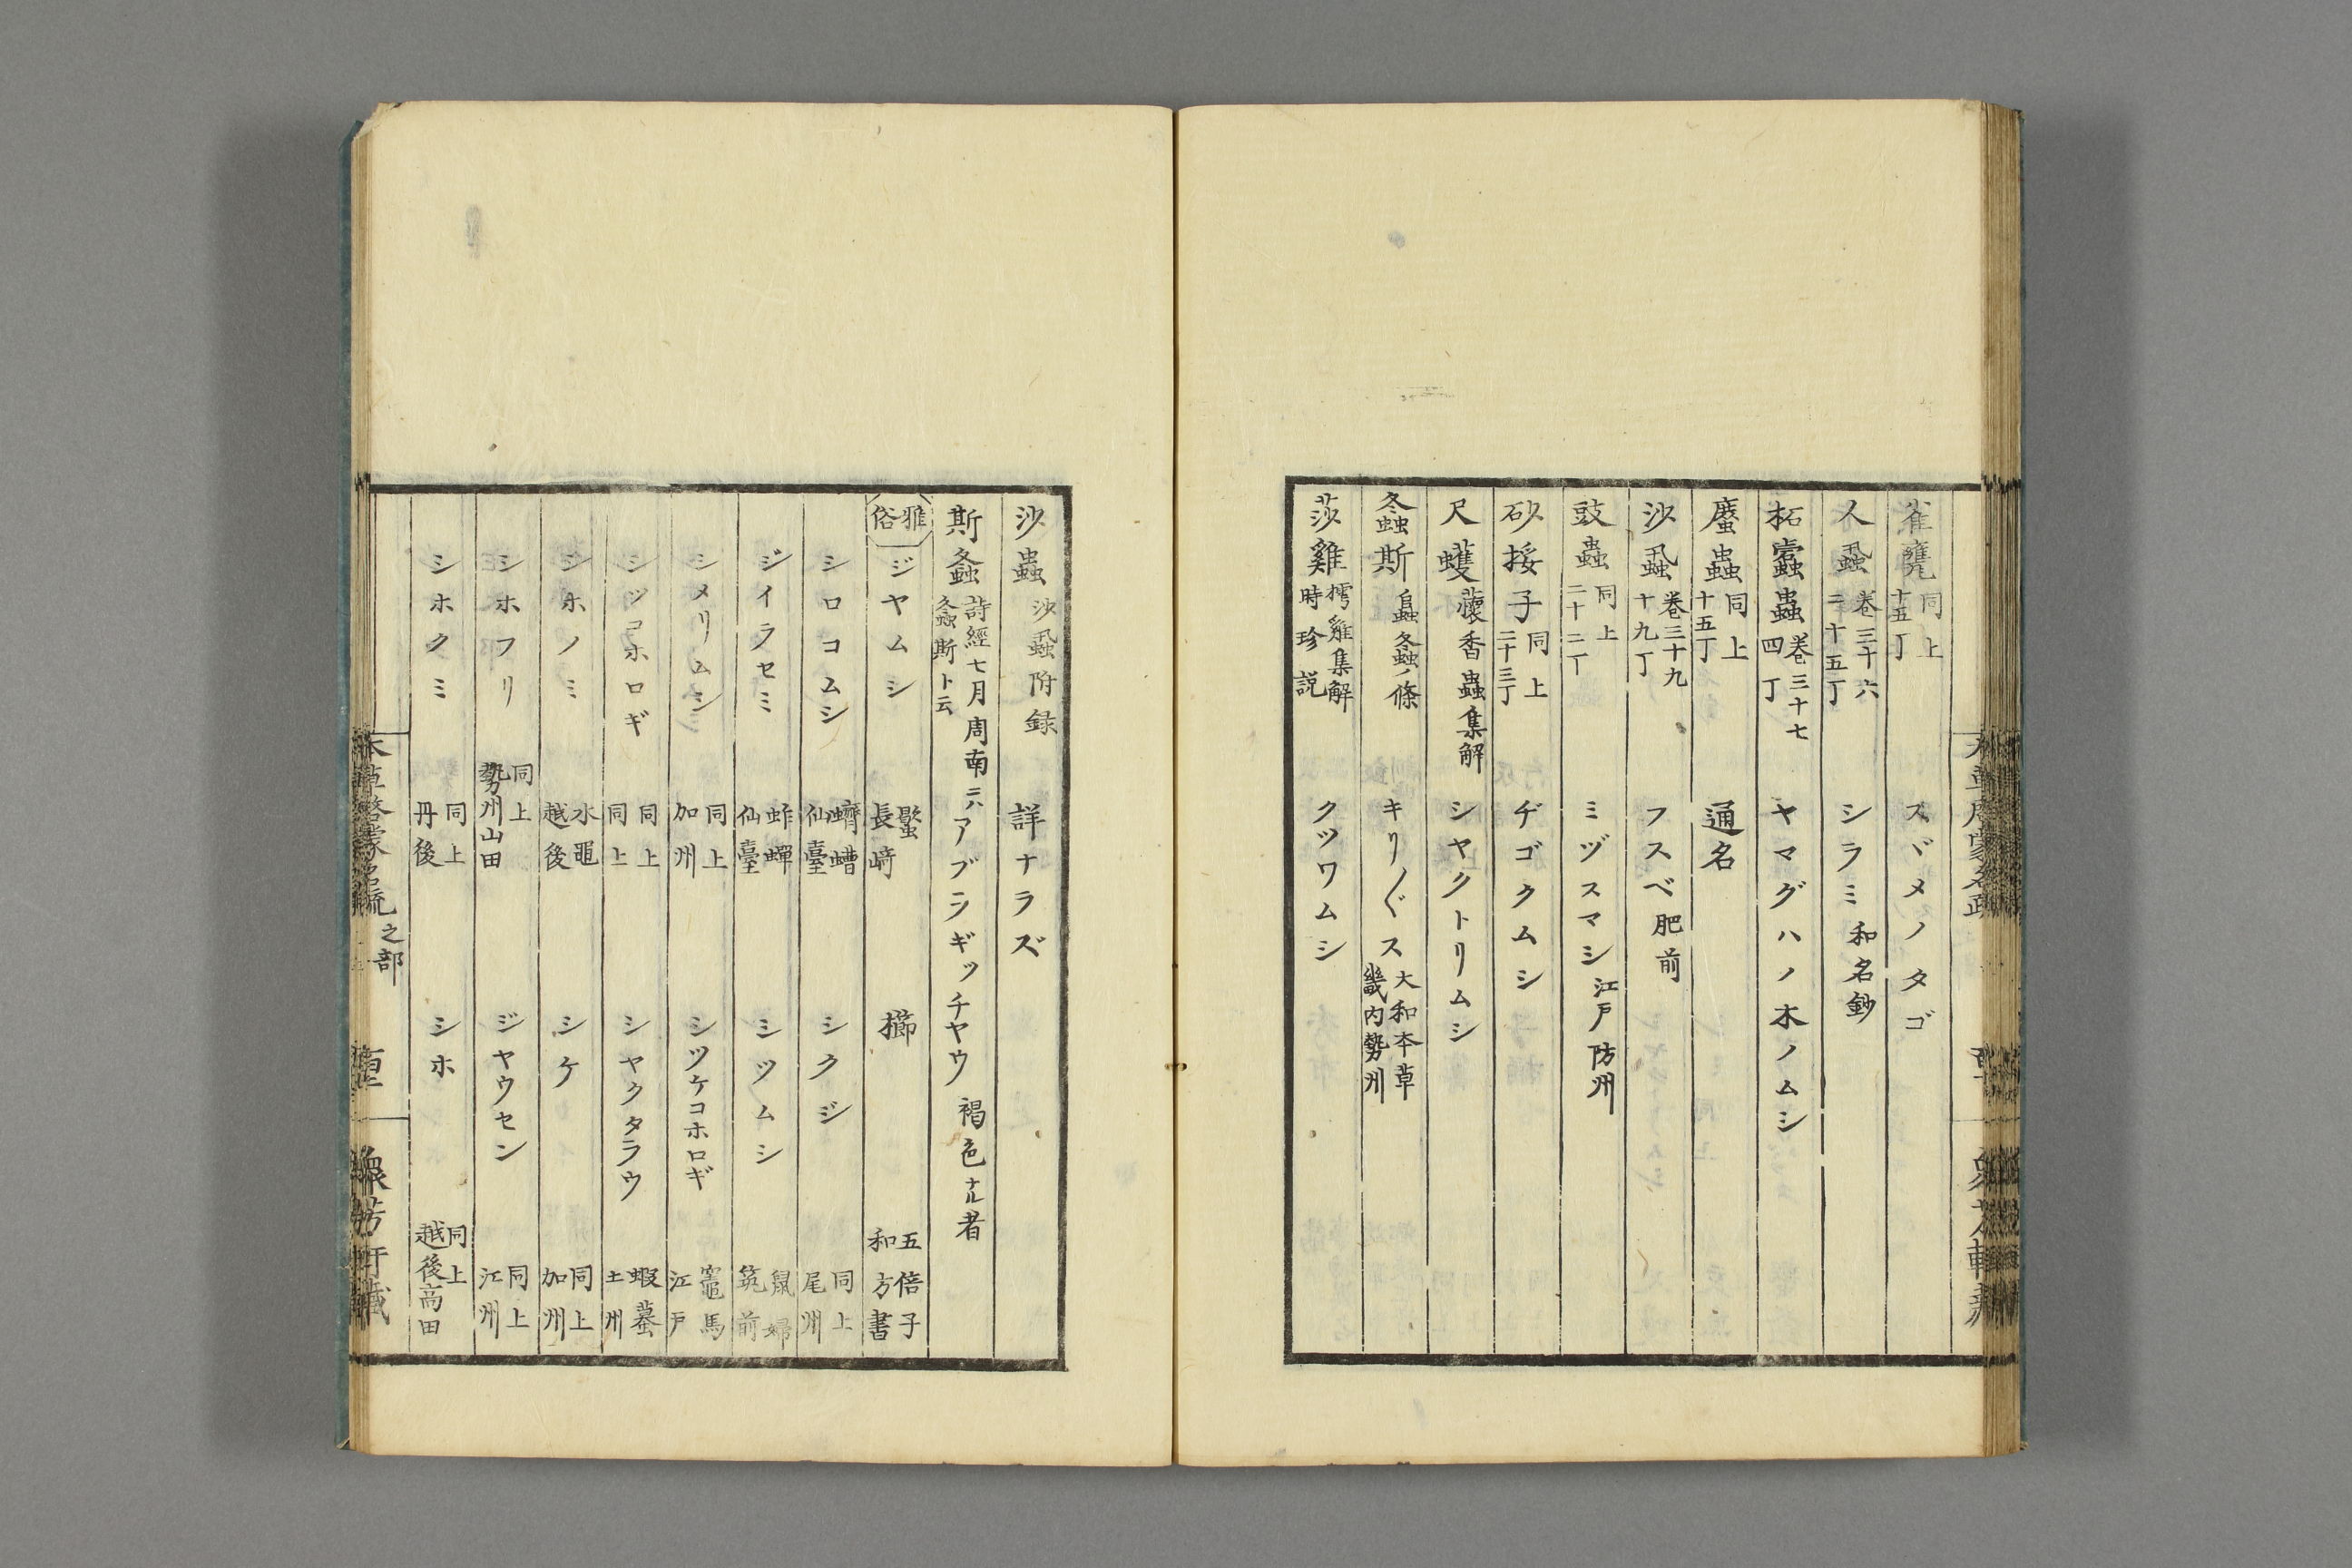 雀甕 同上 十五丁 スヾメノタゴ
人蝨 巻三十六 二十五丁 シラミ 和名鈔
柘蠹蟲 巻三十七 四丁 ヤマグハノ木ノムシ
䗪蟲 同上 十五丁 通名
沙蝨 巻三十九 十九丁 フスベ 肥前
豉蟲 同上 二十二丁 ミヅスマシ 江戸 防州
砂挼子 同上 二十三丁 ヂゴクムシ
尺蠖 蘹香蟲集解 シヤクトリムシ
螽斯 𧒂螽ノ條 キリ〴〵ス 大和本草 畿内勢州
莎雞 樗雞集解 時珍説 クツワムシ
沙蟲 沙蝨附録 詳ナラズ
斯螽 詩經七月周南ニハ 螽斯ト云 アブラギッチヤウ 褐色ナル者
雅俗
ジヤムシ 蠁 長崎 櫛 五倍子 和方書
シロコムシ 蠐螬 仙臺 シクジ 同上 尾州
ジイラセミ 蚱蟬 仙臺 シツムシ 鼠婦 筑前
シメリムシ 同上 加州 シツケコホロギ 竈馬 江戸
シツコホロギ 同上 同上 シヤクタラウ 蝦蟇 土州
シホノミ 水黽 越後 シケ 同上 加州
シホフリ 同上 勢州山田 ジヤウセン 同上 江州
シホクミ 同上 丹後 シホ 同上 越後高田
本草啓蒙名疏 之部